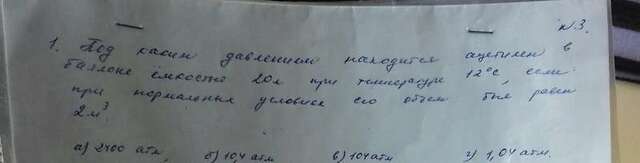 №3.
1. Под каким давлением находится ацетилен в
баллоне ёмкостью 20л при температуре 12°С, если
при нормальных условиях его объем был равен
2м³.
а) 2400 атм, б) 10,4 атм в) 104 атм г) 1,04 атм.